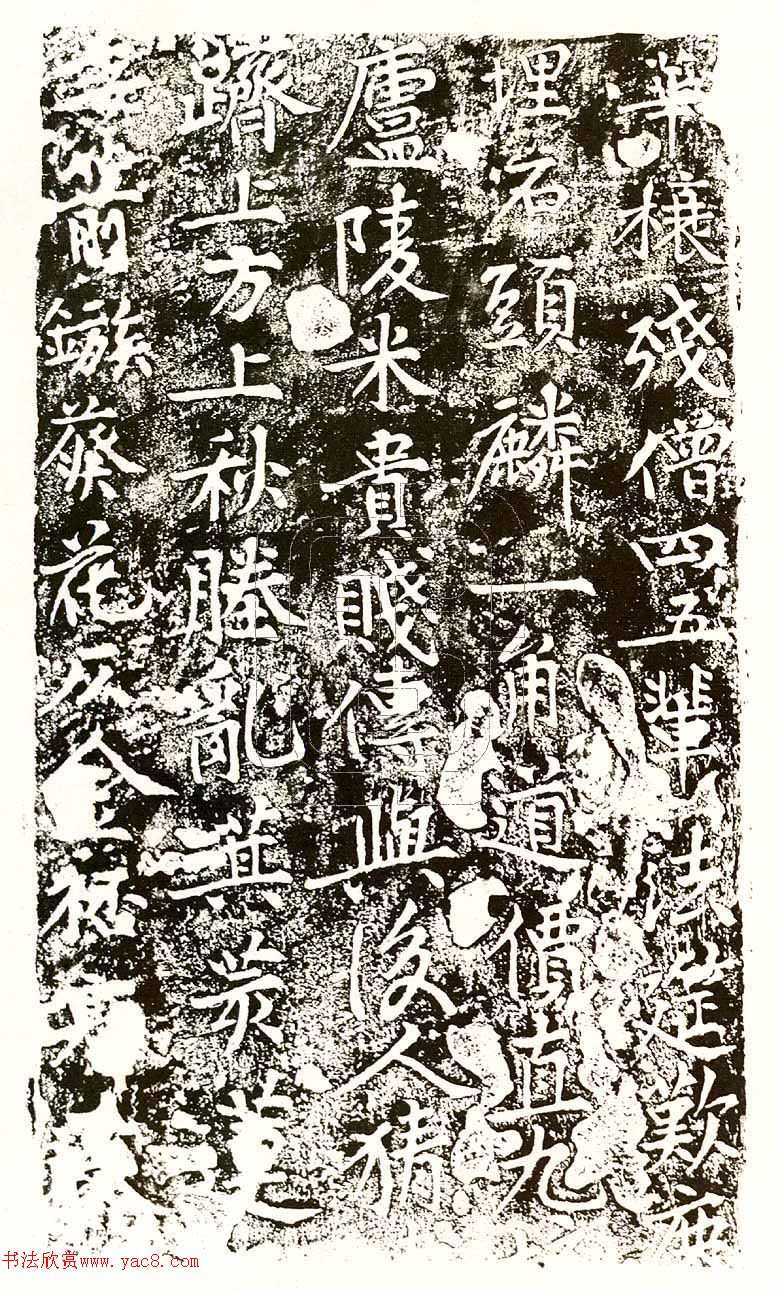 華榱殘僧四五輩法筵歎
埋石頭麟一角道價直九
廬陵米貴賤傳與後人猜
躋上方上秋塍亂萁荻
前鏃葵花金
书法欣赏www.yac8.com